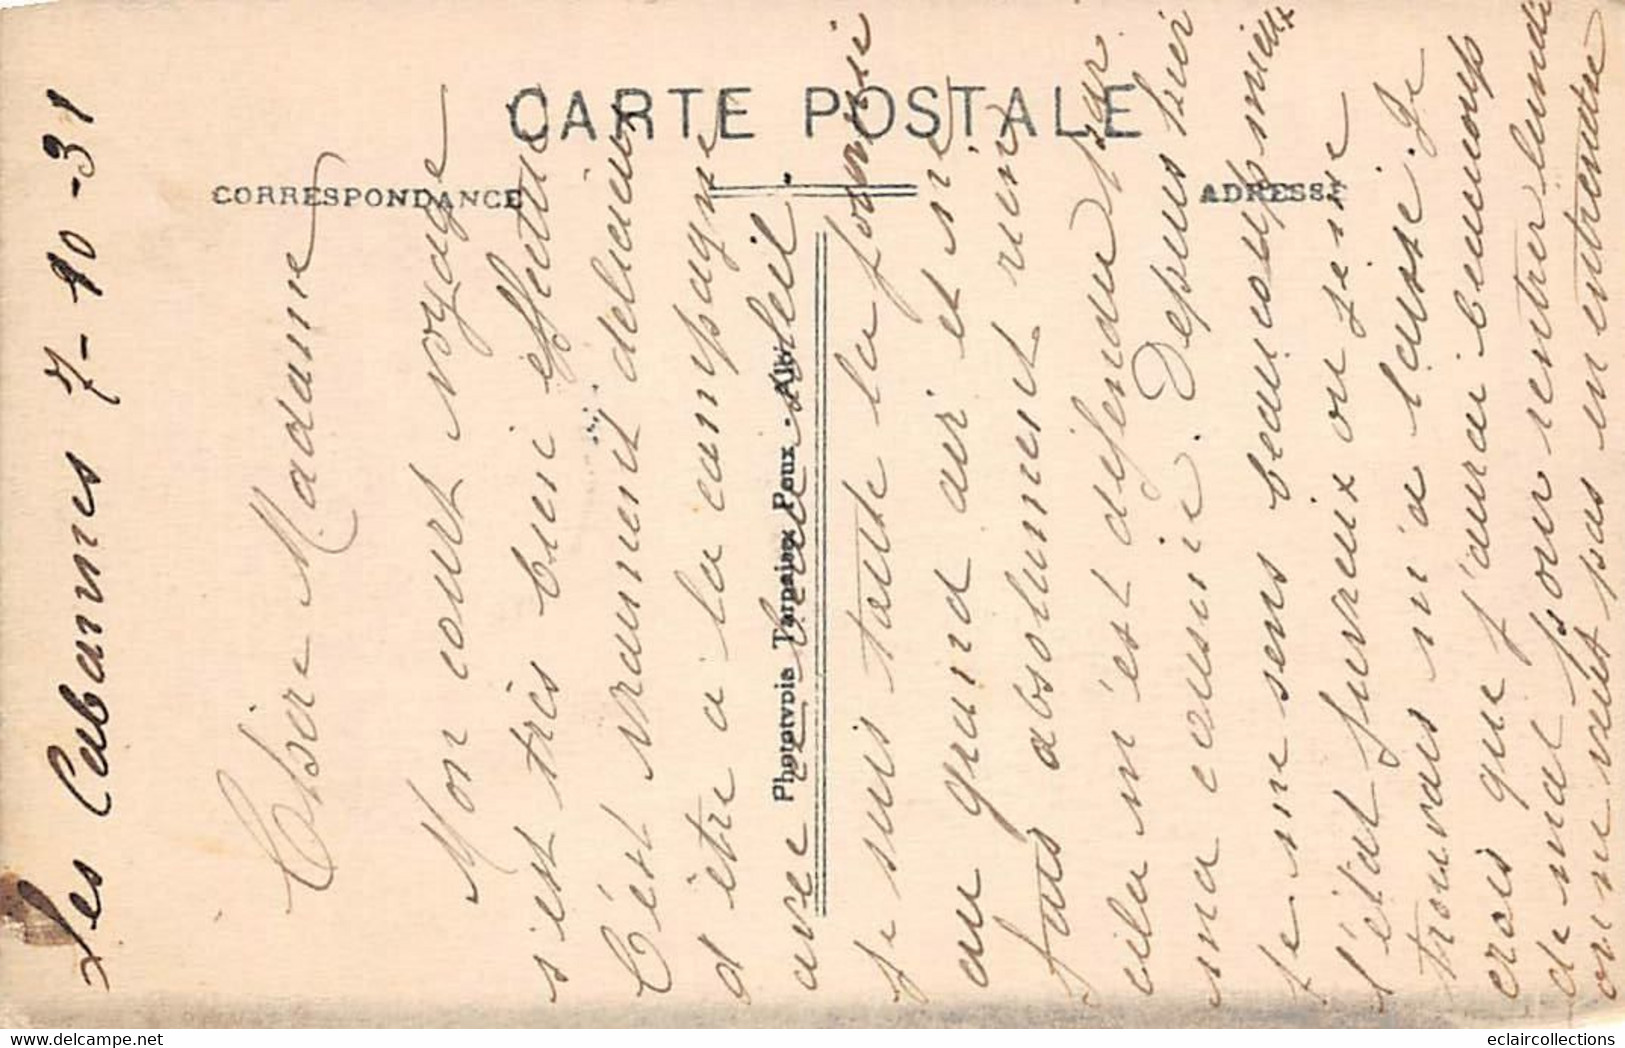 CARTE POSTALE
CORRESPONDANCE
ADRESSE
Phototypie Tarpaioux Poux - Albi
Les Cabannes 7-10-31
Chère Madame
Mon court voyage
s'est très bien effectué
C'est vraiment délicieux
d'être a la campagne
avec ce beau soleil
Je suis toute la journée
au grand air et ne
fais absolument rien
cela m'est défendu par
ma cousine. Depuis hier
je me sens beaucoup mieux
l'état fiévreux ou je me
trouvais m'a laissé. Je
crois que j'aurai beaucoup
de mal pour rentrer lundi
on ne veut pas en entendre